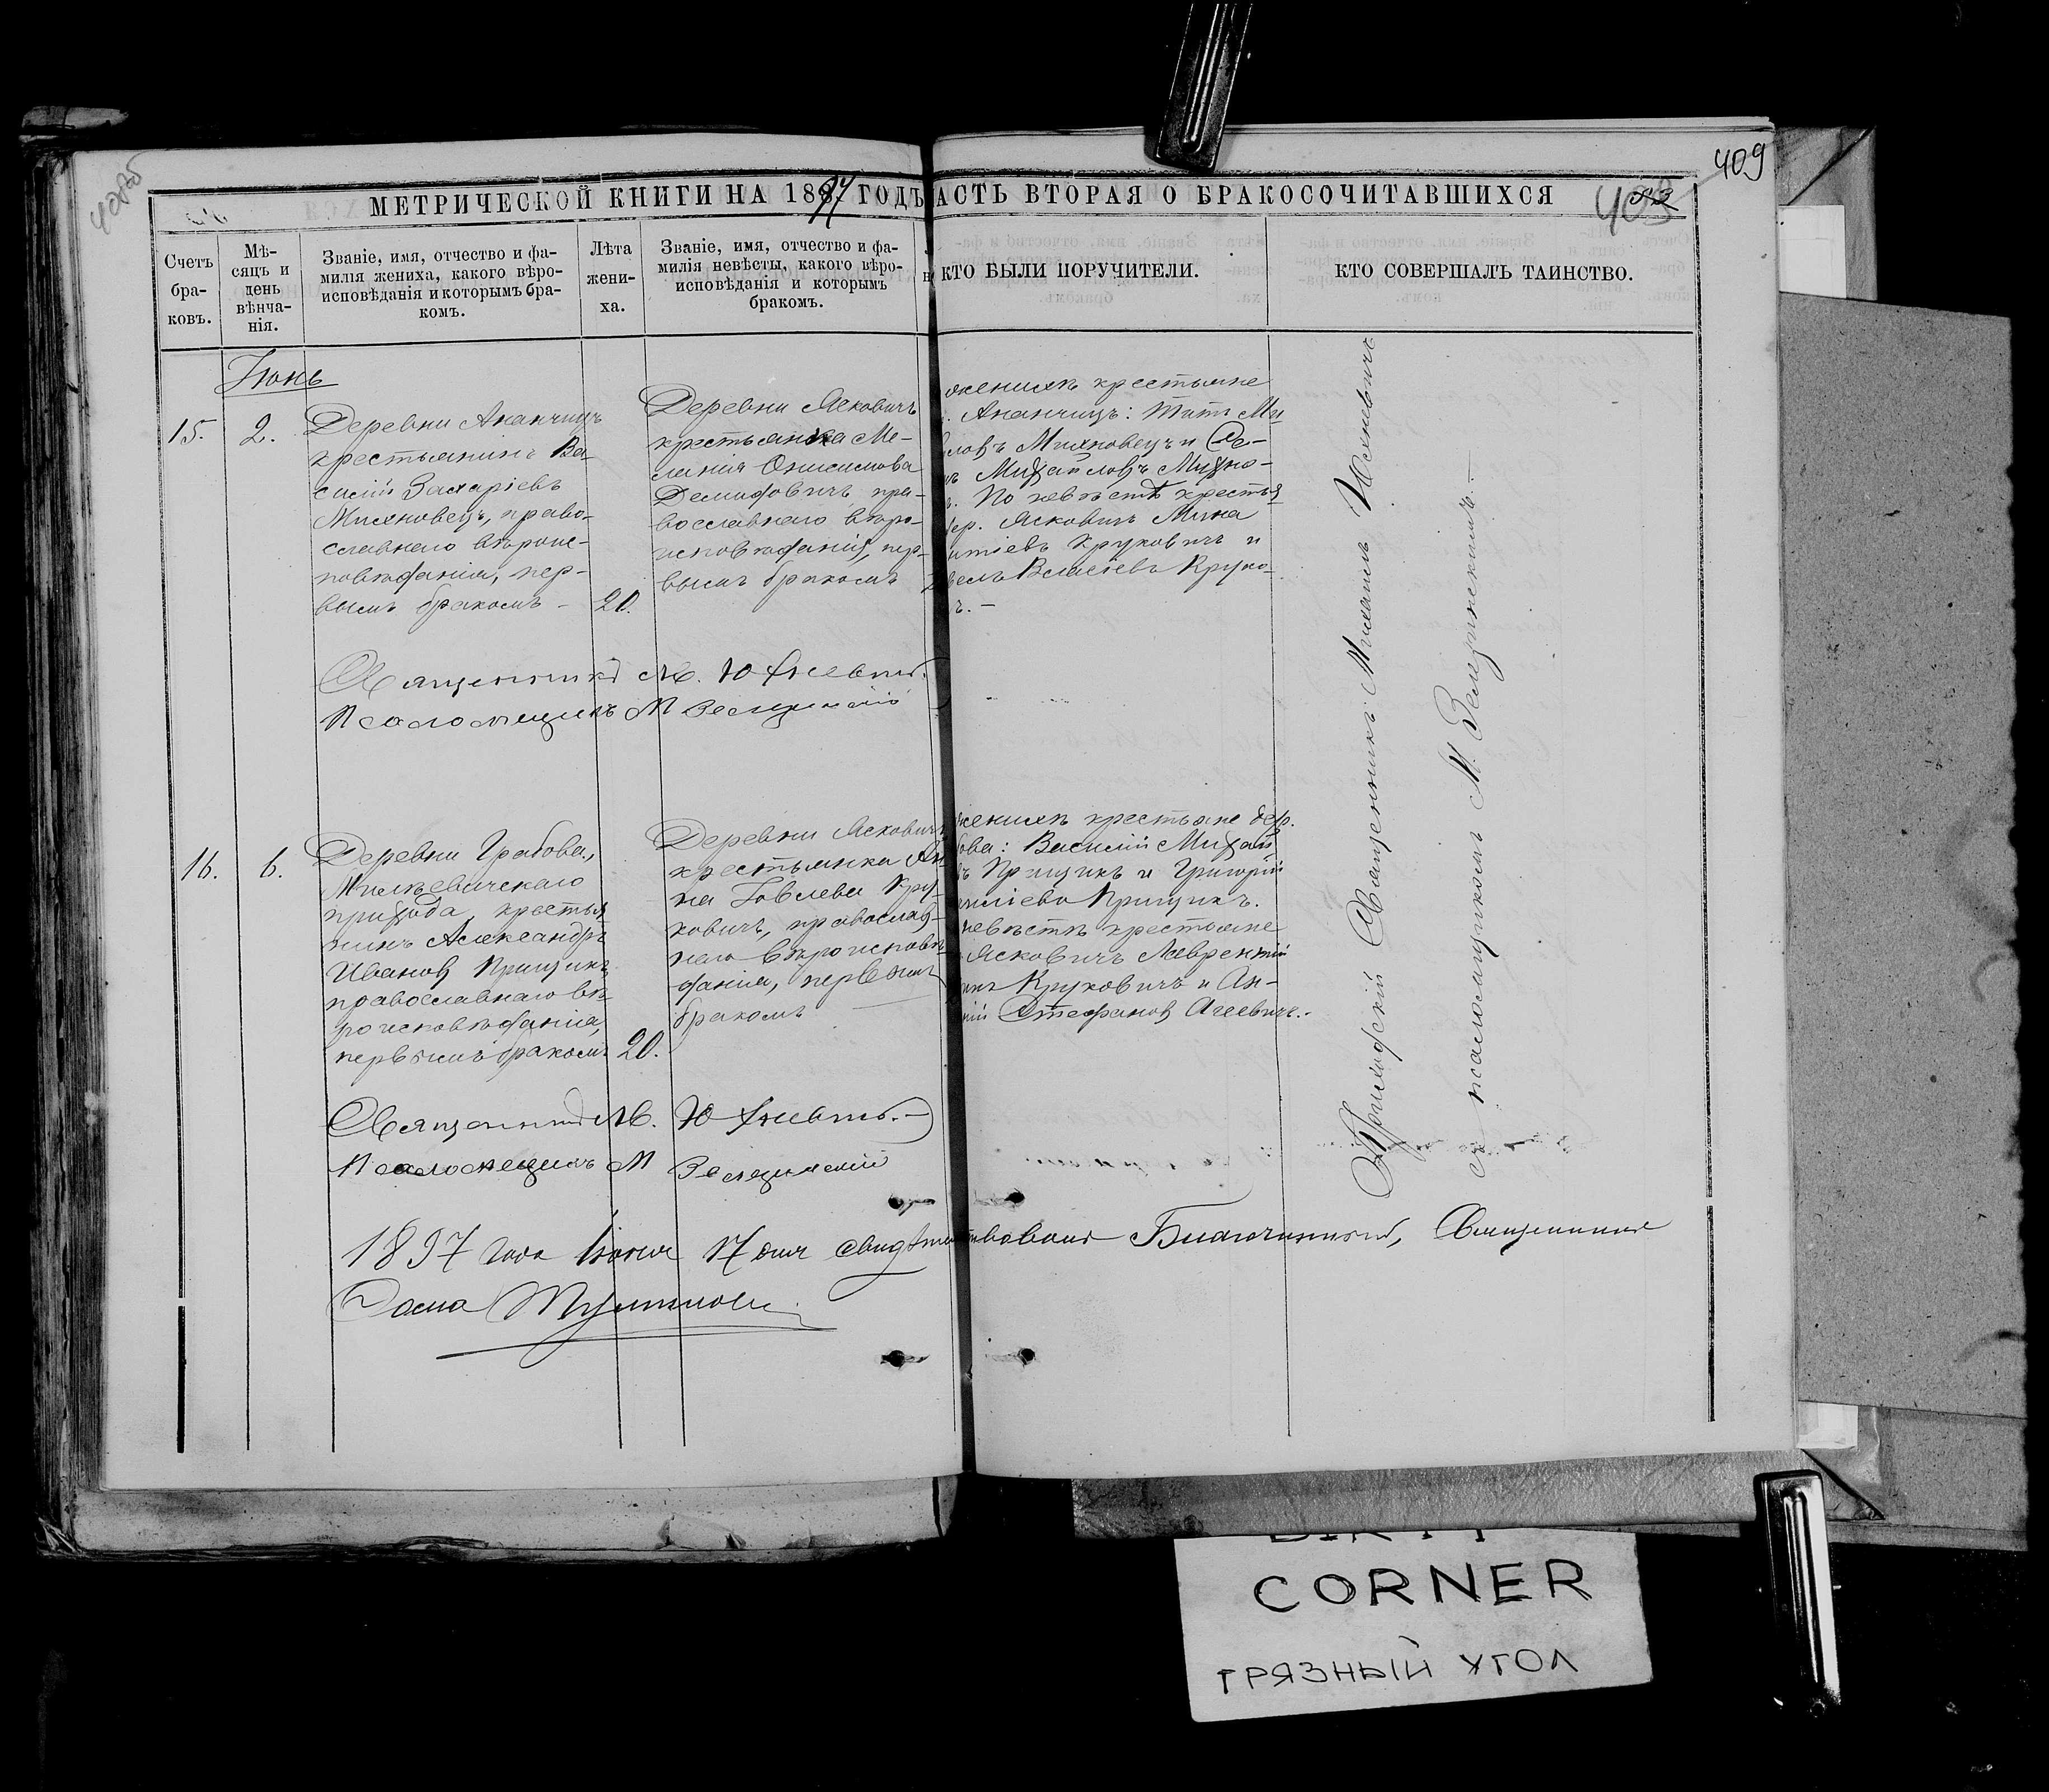 409
МЕТРИЧЕСКОЙ КНИГИ НА 1897 ГОДЪ
АСТЬ ВТОРАЯ О БРАКОСОЧИТАВШИХСЯ
403
Счетъ бра-ковъ.
Мѣ-сяцъ и день вѣнча-нія.
Званіе, имя, отчество и фа-
милія жениха, какого вѣро-
исповѣданія и которымъ бра-
комъ.
Лѣта жени-ха.
Званіе, имя, отчество и фа-
милія невѣсты, какого вѣро-
исповѣданія и которымъ
бракомъ.
КТО БЫЛИ ПОРУЧИТЕЛИ.
КТО СОВЕРШАЛЪ ТАИНСТВО.
Іюнь
15.
2.
Деревни Ананчицъ
крестьянинъ Ва-
силій Захаріевъ
Михновецъ, право-
славнаго вѣроис-
повѣданія, пер-
вымъ бракомъ -
20.
Деревни Ясковичъ
крестьянка Ме-
ланія Онисимова
Демидовичъ, пра-
вославнаго вѣро-
исповѣданія, пер-
вымъ бракомъ
женихѣ крестьяне
Ананчицъ: Титъ Ми-
ловъ Михновецъ и Се-
Михайловъ Михно-
По невѣстѣ крестья
дер. Ясковичъ Мина
Круковичъ и
Власіевъ Круко-
ъ. -
Священникъ М. Юхневичъ
Псаломщикъ М Зелезинскій
16.
6.
Деревни Грабова,
Милевичскаго
прихода, крестья
нинъ Александръ
Ивановъ Прищикъ,
православнаго вѣ-
роисповѣданія,
первымъ бракомъ
20.
Деревни Ясковичъ
крестьянка Ан-
на Іовлева Кру-
ковичъ, православ-
наго вѣроисповѣ-
данія, первымъ
бракомъ
женихѣ крестьяне дер.
ова: Василій Михай
ъ Прищикъ и Григорій
Прищикъ.
невѣстѣ крестьяне
Ясковичъ Лаврентій
Круковичъ и Ан-
ній Стефановъ Агеевичъ.-
Священникъ М. Юхневичъ.-
Псаломщикъ М Зелезинскій
Приходскій Священникъ Михаилъ Юхневичъ
съ псаломщикомъ М. Зелезинскимъ.-
1897 года Іюня 17 дня свидѣтельствовалъ Благочинный, Священникъ
CORNER
ГРЯЗНЫЙ УГОЛ